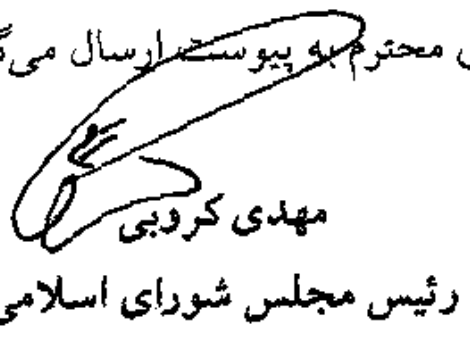 محترم به پیوست ارسال می‌
مهدی کروبی
رئیس مجلس شورای اسلامی